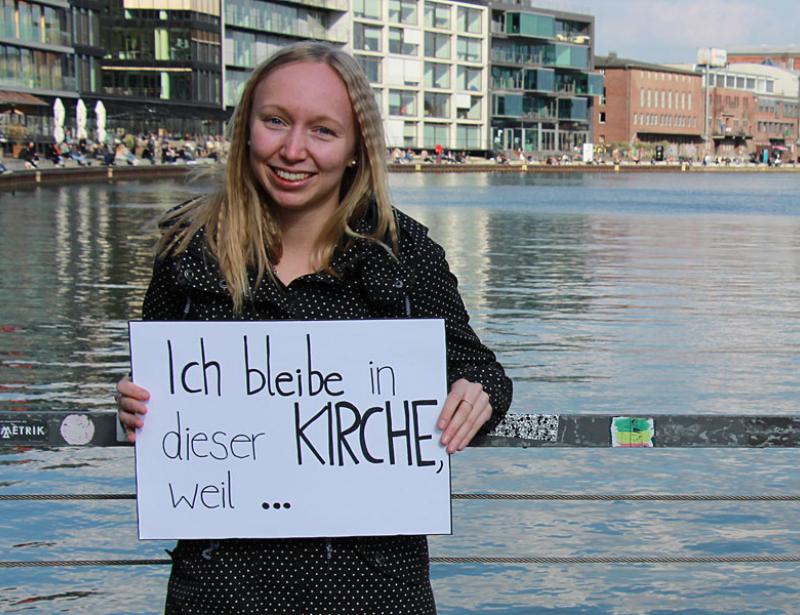 Ich bleibe in
dieser KIRCHE,
weil ...
METRIK